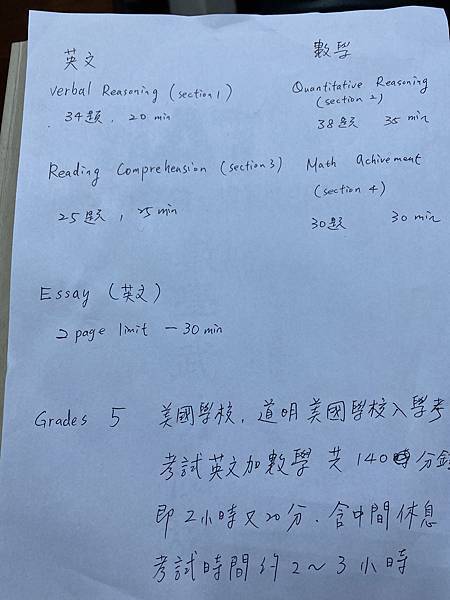 英文
數學
Verbal Reasoning (section 1)
34題, 20 min
Quantitative Reasoning
(section 2)
38題 35 min
Reading Comprehension (section 3)
25題, 25 min
Math Achivement
(section 4)
30題 30 min
Essay (英文)
2 page limit - 30 min
Grades 5 美國學校, 道明美國學校入學考
考試英文加數學 共 140 分鐘
即 2小時又20分. 含中間休息
考試時間約 2~3小時